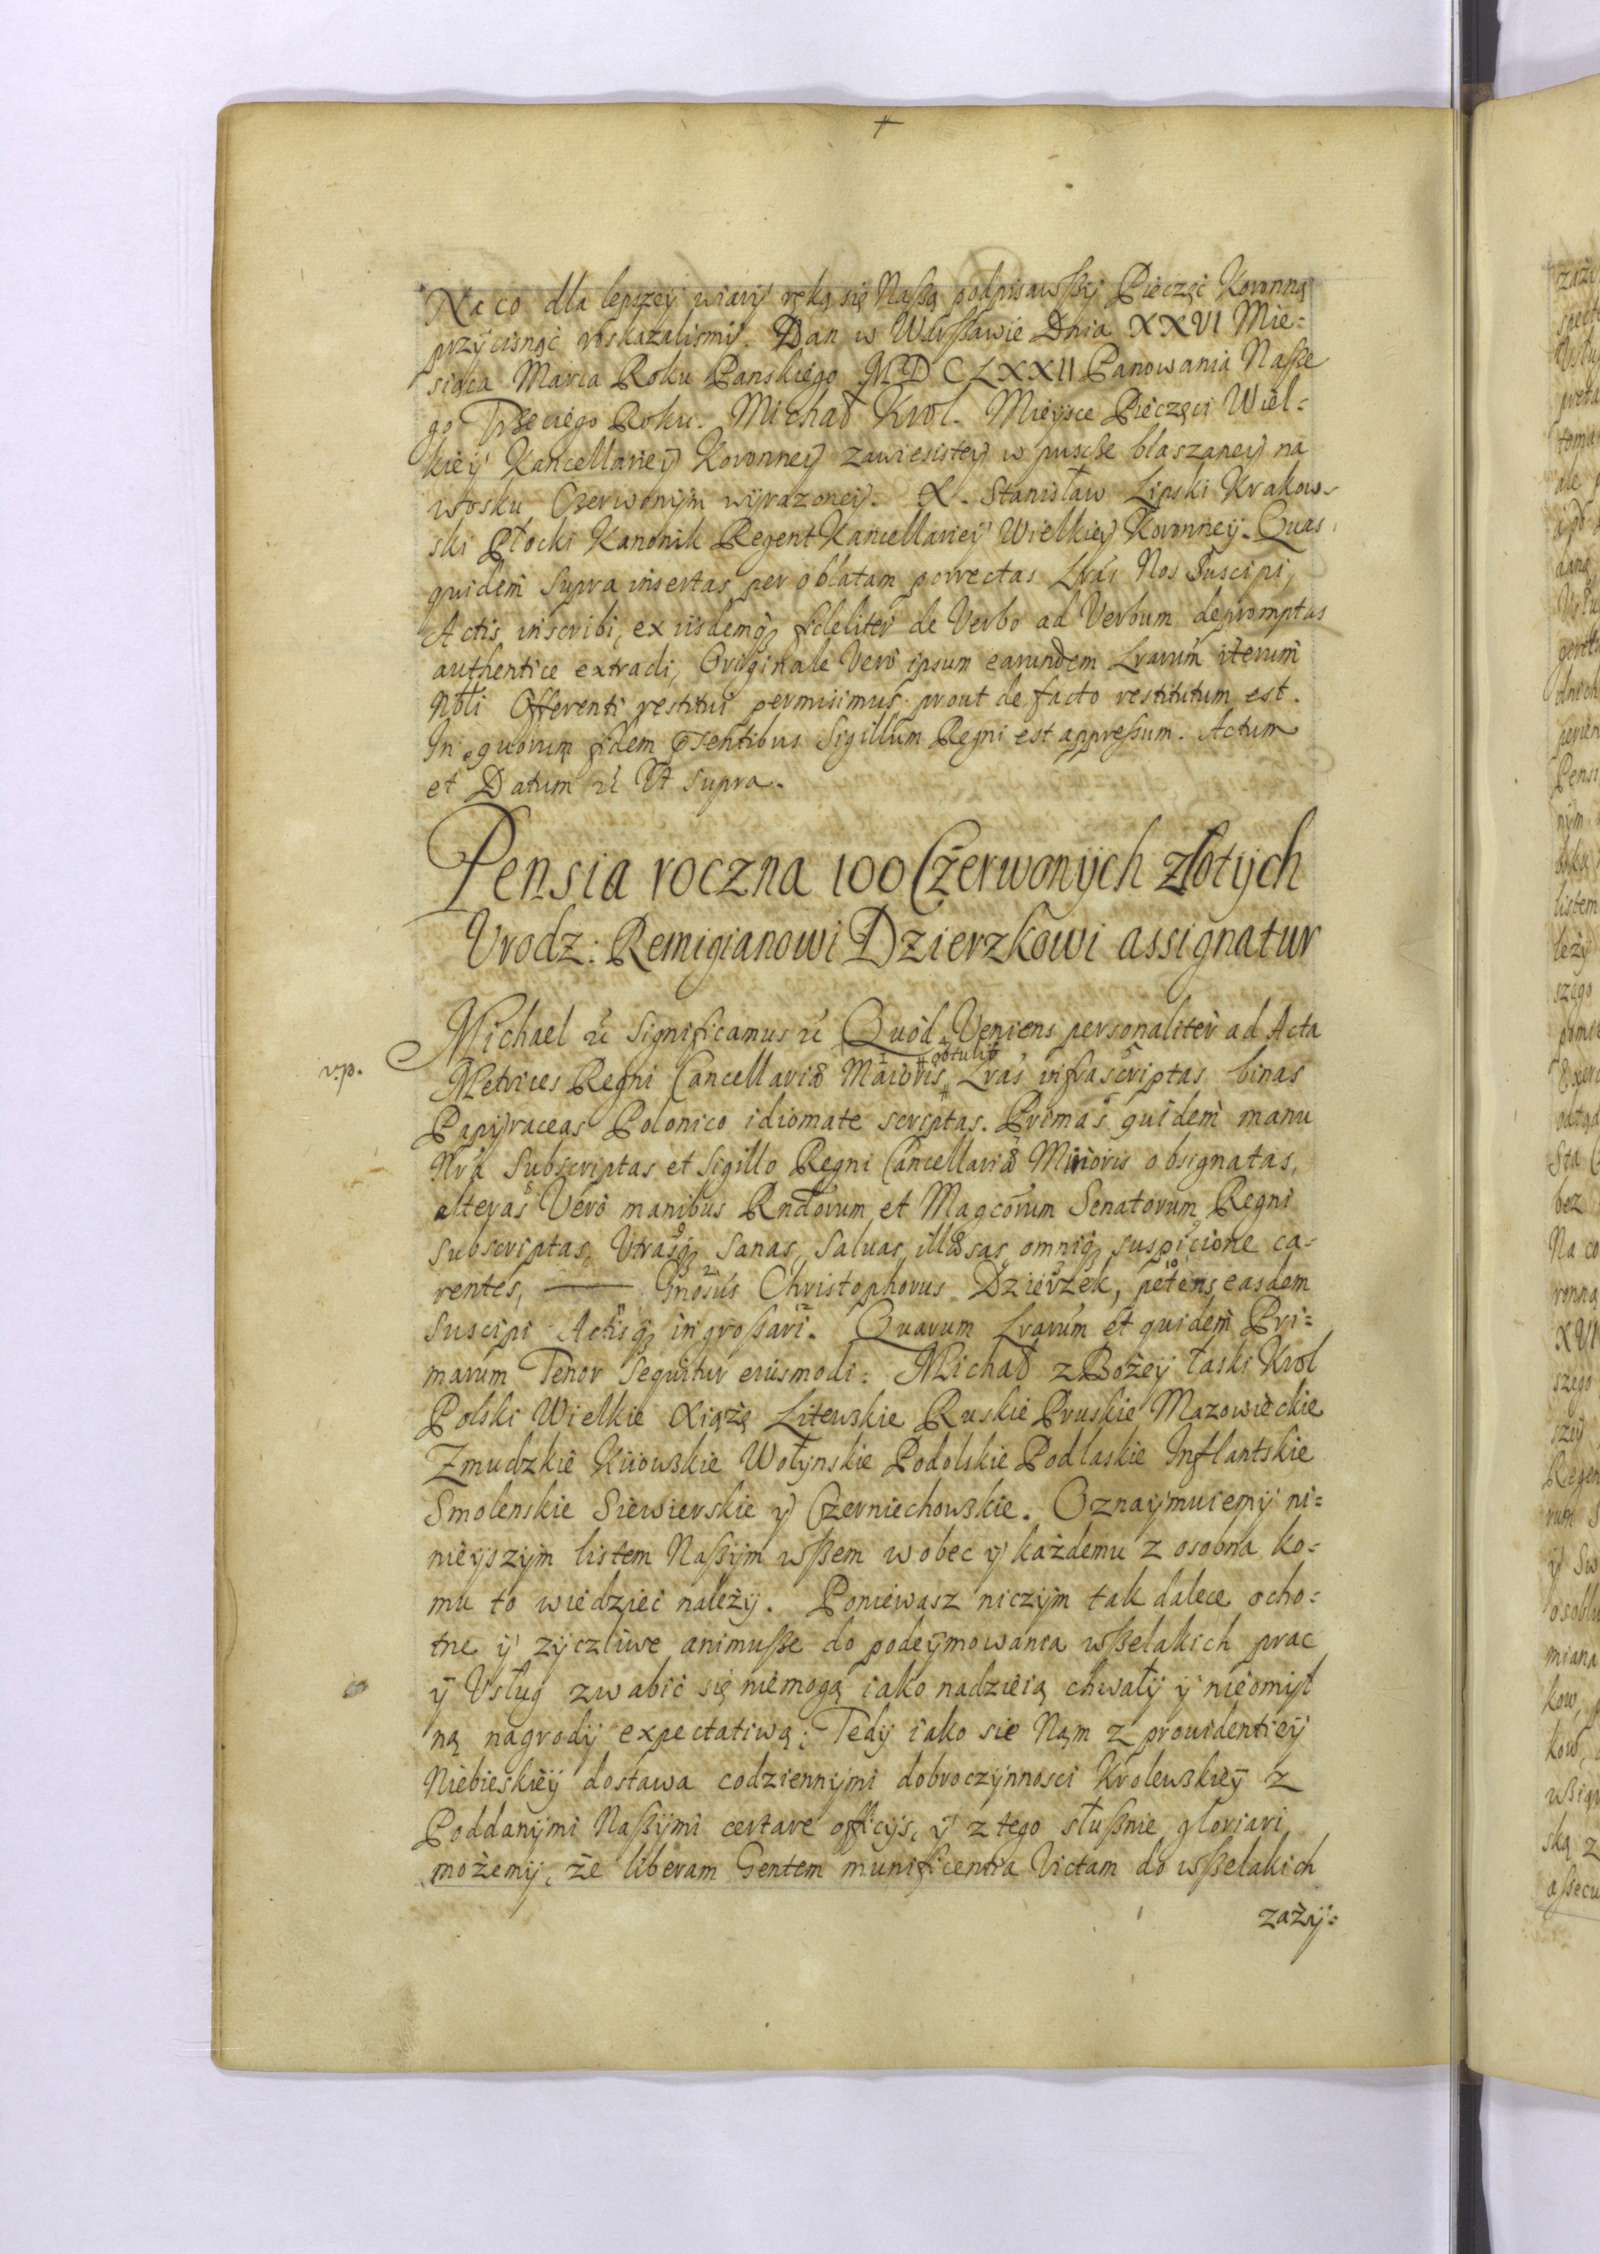 Na co dla lepszey wiary ręką się Naßą podpisawßy Pieczęć Koronną
przycisnąć roskazalismy. Dan w Warßawie Dnia XXVI Mie=
siąca Marca Roku Panskiego MDCLXXII Panowania Naße
go Trzeciego Roku. Michał Krol. Mieysce Pieczęci Wiel=
kiey Kancellariey Koronney zawiesistey w puscse blaszaney na
wosku Czerwonym wyrazoney. X. Stanisław Lipski Krakow=
ski Płocki Kanonik Regent Kancellariey Wielkiey Koronney. Quas
quidem supra insertas per oblatam porrectas Lras Nos Suscipi,
Actis inscribi, ex iisdemq fideliter de Verbo ad Verbum depromptas
authentice extradi, Originale Vero ipsum earundem Lrarum iterum
Nbli Offerenti restitui permisimus prout de facto restitutum est.
In quorum fidem pntibus Sigillum Regni est appreßum. Actum
et Datum rc Vt supra.
Pensia roczna 100 Czerwonych złotych
Vrodz: Remigianowi Dzierzkowi assignatur
Michael rc Significamus rc Quod Veniens personaliter ad Acta
v.p.
obtulit
Metrices Regni Cancellariæ Maioris Lras infrascriptas binas
Papyraceas Polonico idiomate scriptas. Primas quidem manu
Nra Subscriptas et Sigillo Regni Cancellariæ Minoris obsignatas,
alteras Vero manibus Rndorum et Magcorum Senatorum Regni
subscriptas, Vtrasq sanas, saluas, illæsas, omniq suspicione ca=
rentes, Gnosus Christophorus Dzierzek, petens easdem
suscipi Actisq ingroßari. Quarum Lrarum et quidem Pri=
marum Tenor sequitur eiusmodi: Michał z Bożey łaski Krol
Polski Wielkie Xiążę Litewskie Ruskie Pruskie Mazowieckie
Zmudzkie Kiiowskie Wołynskie Podolskie Podlaskie Inflantskie
Smolenskie Siewierskie y Czerniechowskie. Oznaymuiemy ni=
nieyszym listem Naßym wßem wobec y każdemu z osobna ko=
mu to wiedzieć należy. Poniewasz niczym tak dalece ocho=
tne y zyczliwe animuße do podeymowania wßelakich prac
y Vsług zwabić się niemogą iako nadzieią chwały y nieomyl
ną nagrody expectatiwą; Tedy iako sie Nam z prouidentiey
Niebieskiey dostawa codziennymi dobroczynnosci Krolewskiey z
Poddanymi Naßymi certare officijs, y z tego słußnie gloriari
możemy, że liberam Gentem munificentia Victam do wßelakich
zaży=